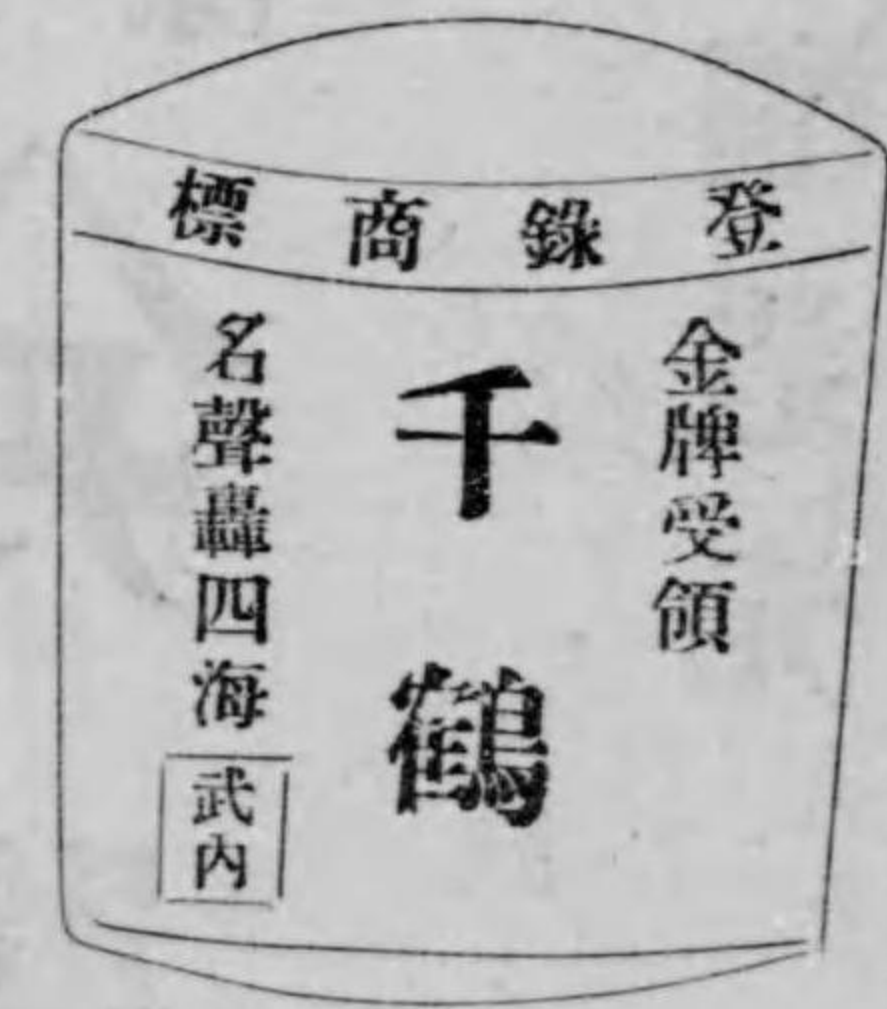 登錄商標
金牌受領
千鶴
名聲轟四海
武内